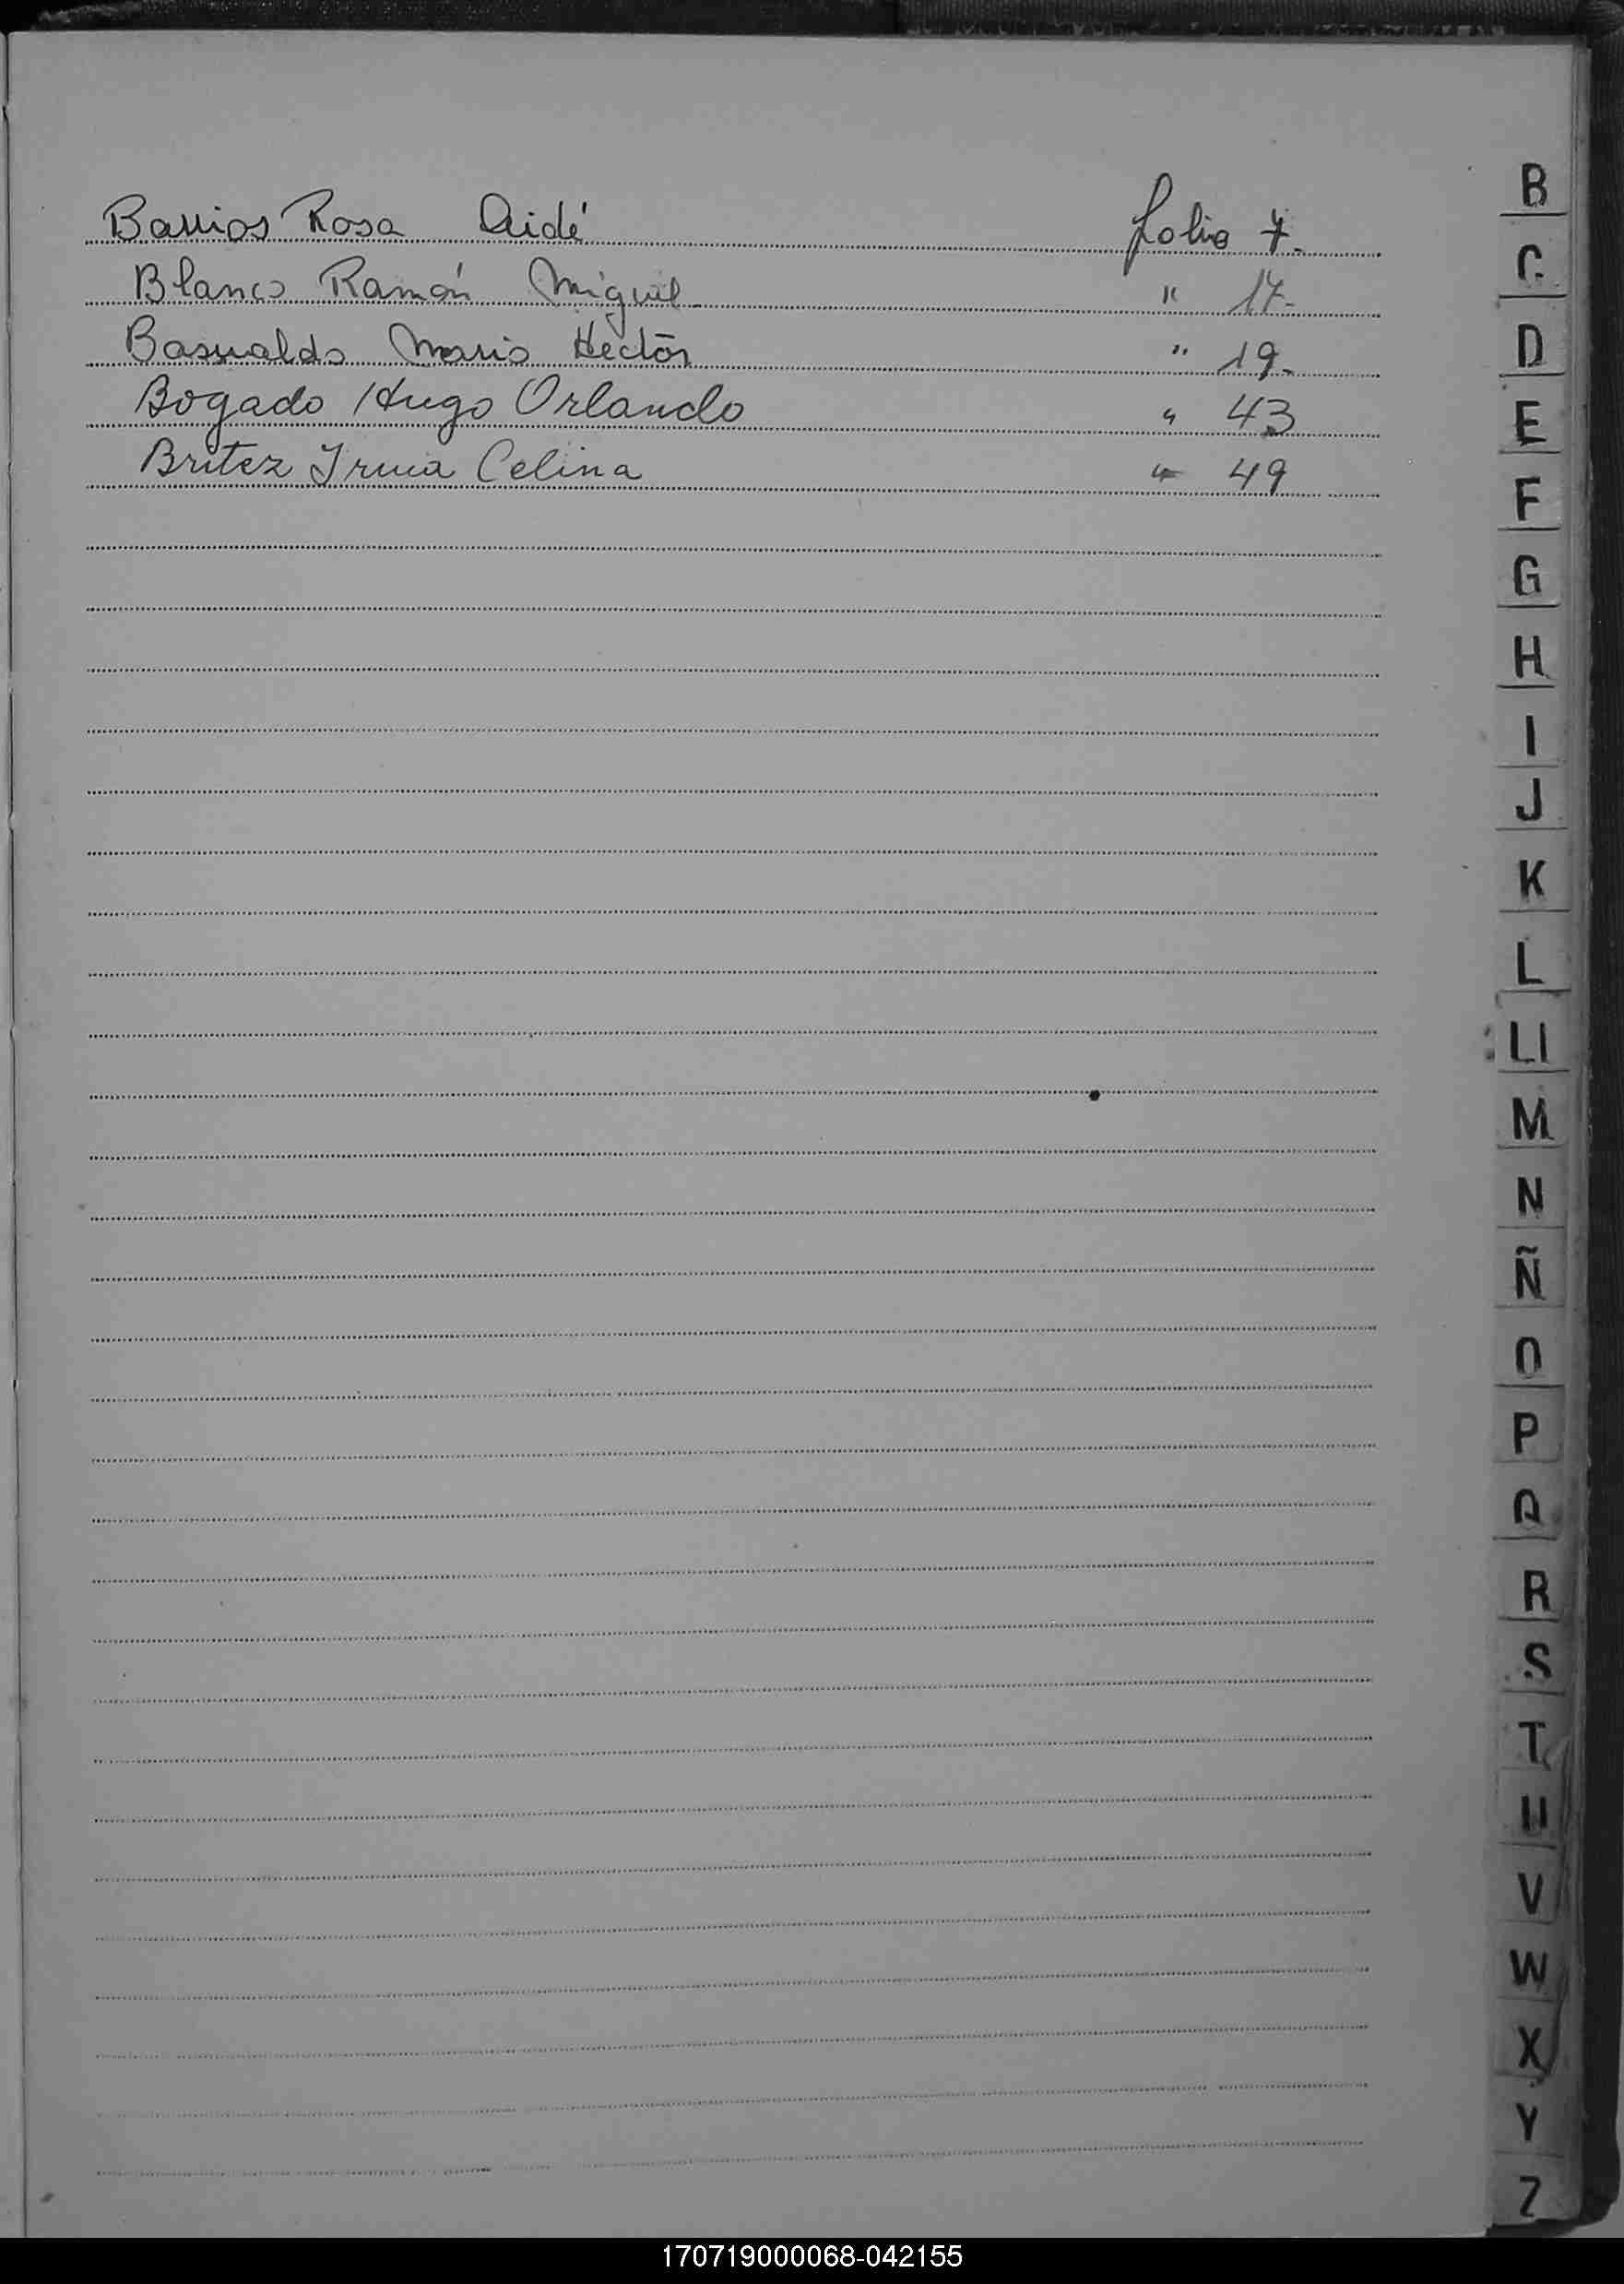 Barrios Rosa Aidé folio 7.
Blanco Ramón Miguel " 17.
Basualdo Mario Hectór " 19.
Bogado Hugo Orlando " 43
Britez Irma Celina " 49
B
C
D
E
F
G
H
I
J
K
L
Ll
M
N
Ñ
O
P
Q
R
S
T
U
V
W
X
Y
Z
170719000068-042155